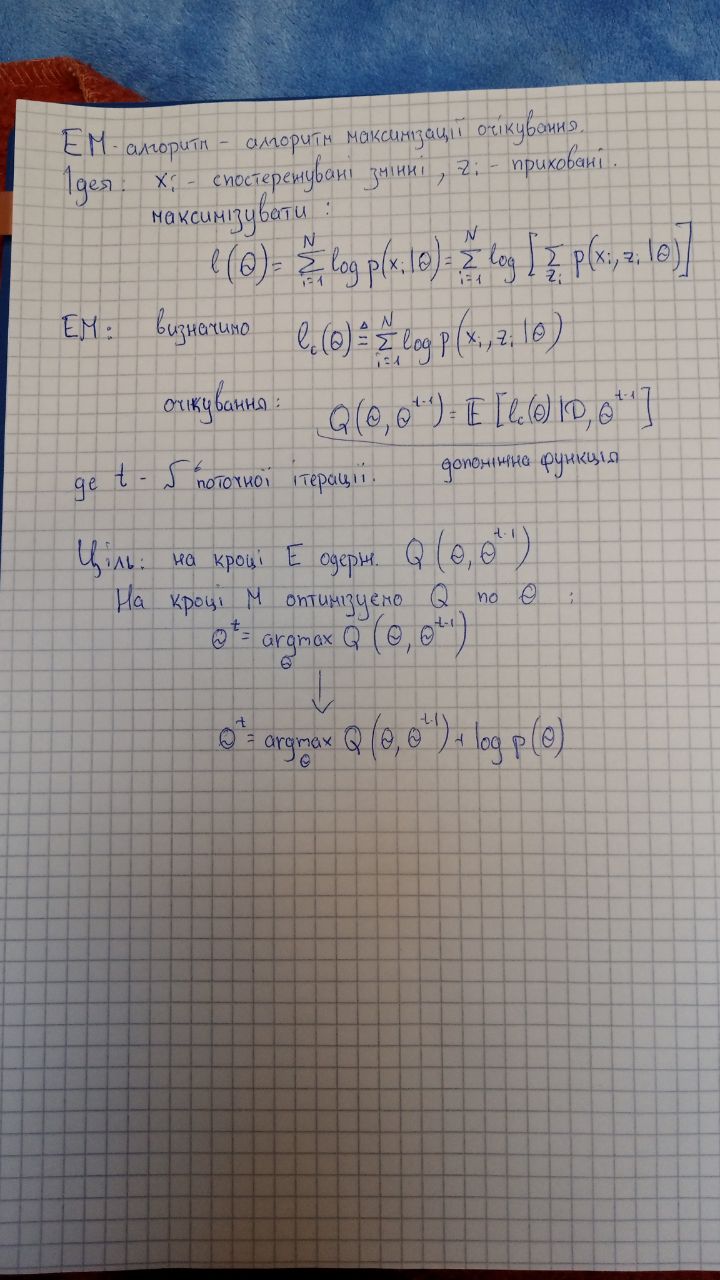 EM-алгоритм - алгоритм максимізації очікування.
Ідея: xᵢ - спостережувані змінні, zᵢ - приховані.
максимізувати:
l(θ) = Σᵢ₌₁ᴺ log p(xᵢ|θ) = Σᵢ₌₁ᴺ log [Σ_zᵢ p(xᵢ, zᵢ|θ)]
EM: визначимо l_c(θ) ≜ Σᵢ₌₁ᴺ log p(xᵢ, zᵢ|θ)
очікування: Q(θ, θᵗ⁻¹) = E [l_c(θ)|D, θᵗ⁻¹]
допоміжна функція
де t - поточної ітерації.
Ціль: на кроці E одерж. Q(θ, θᵗ⁻¹)
На кроці M оптимізуємо Q по θ:
θᵗ = argmax_θ Q(θ, θᵗ⁻¹)
↓
θᵗ = argmax_θ Q(θ, θᵗ⁻¹) + log p(θ)